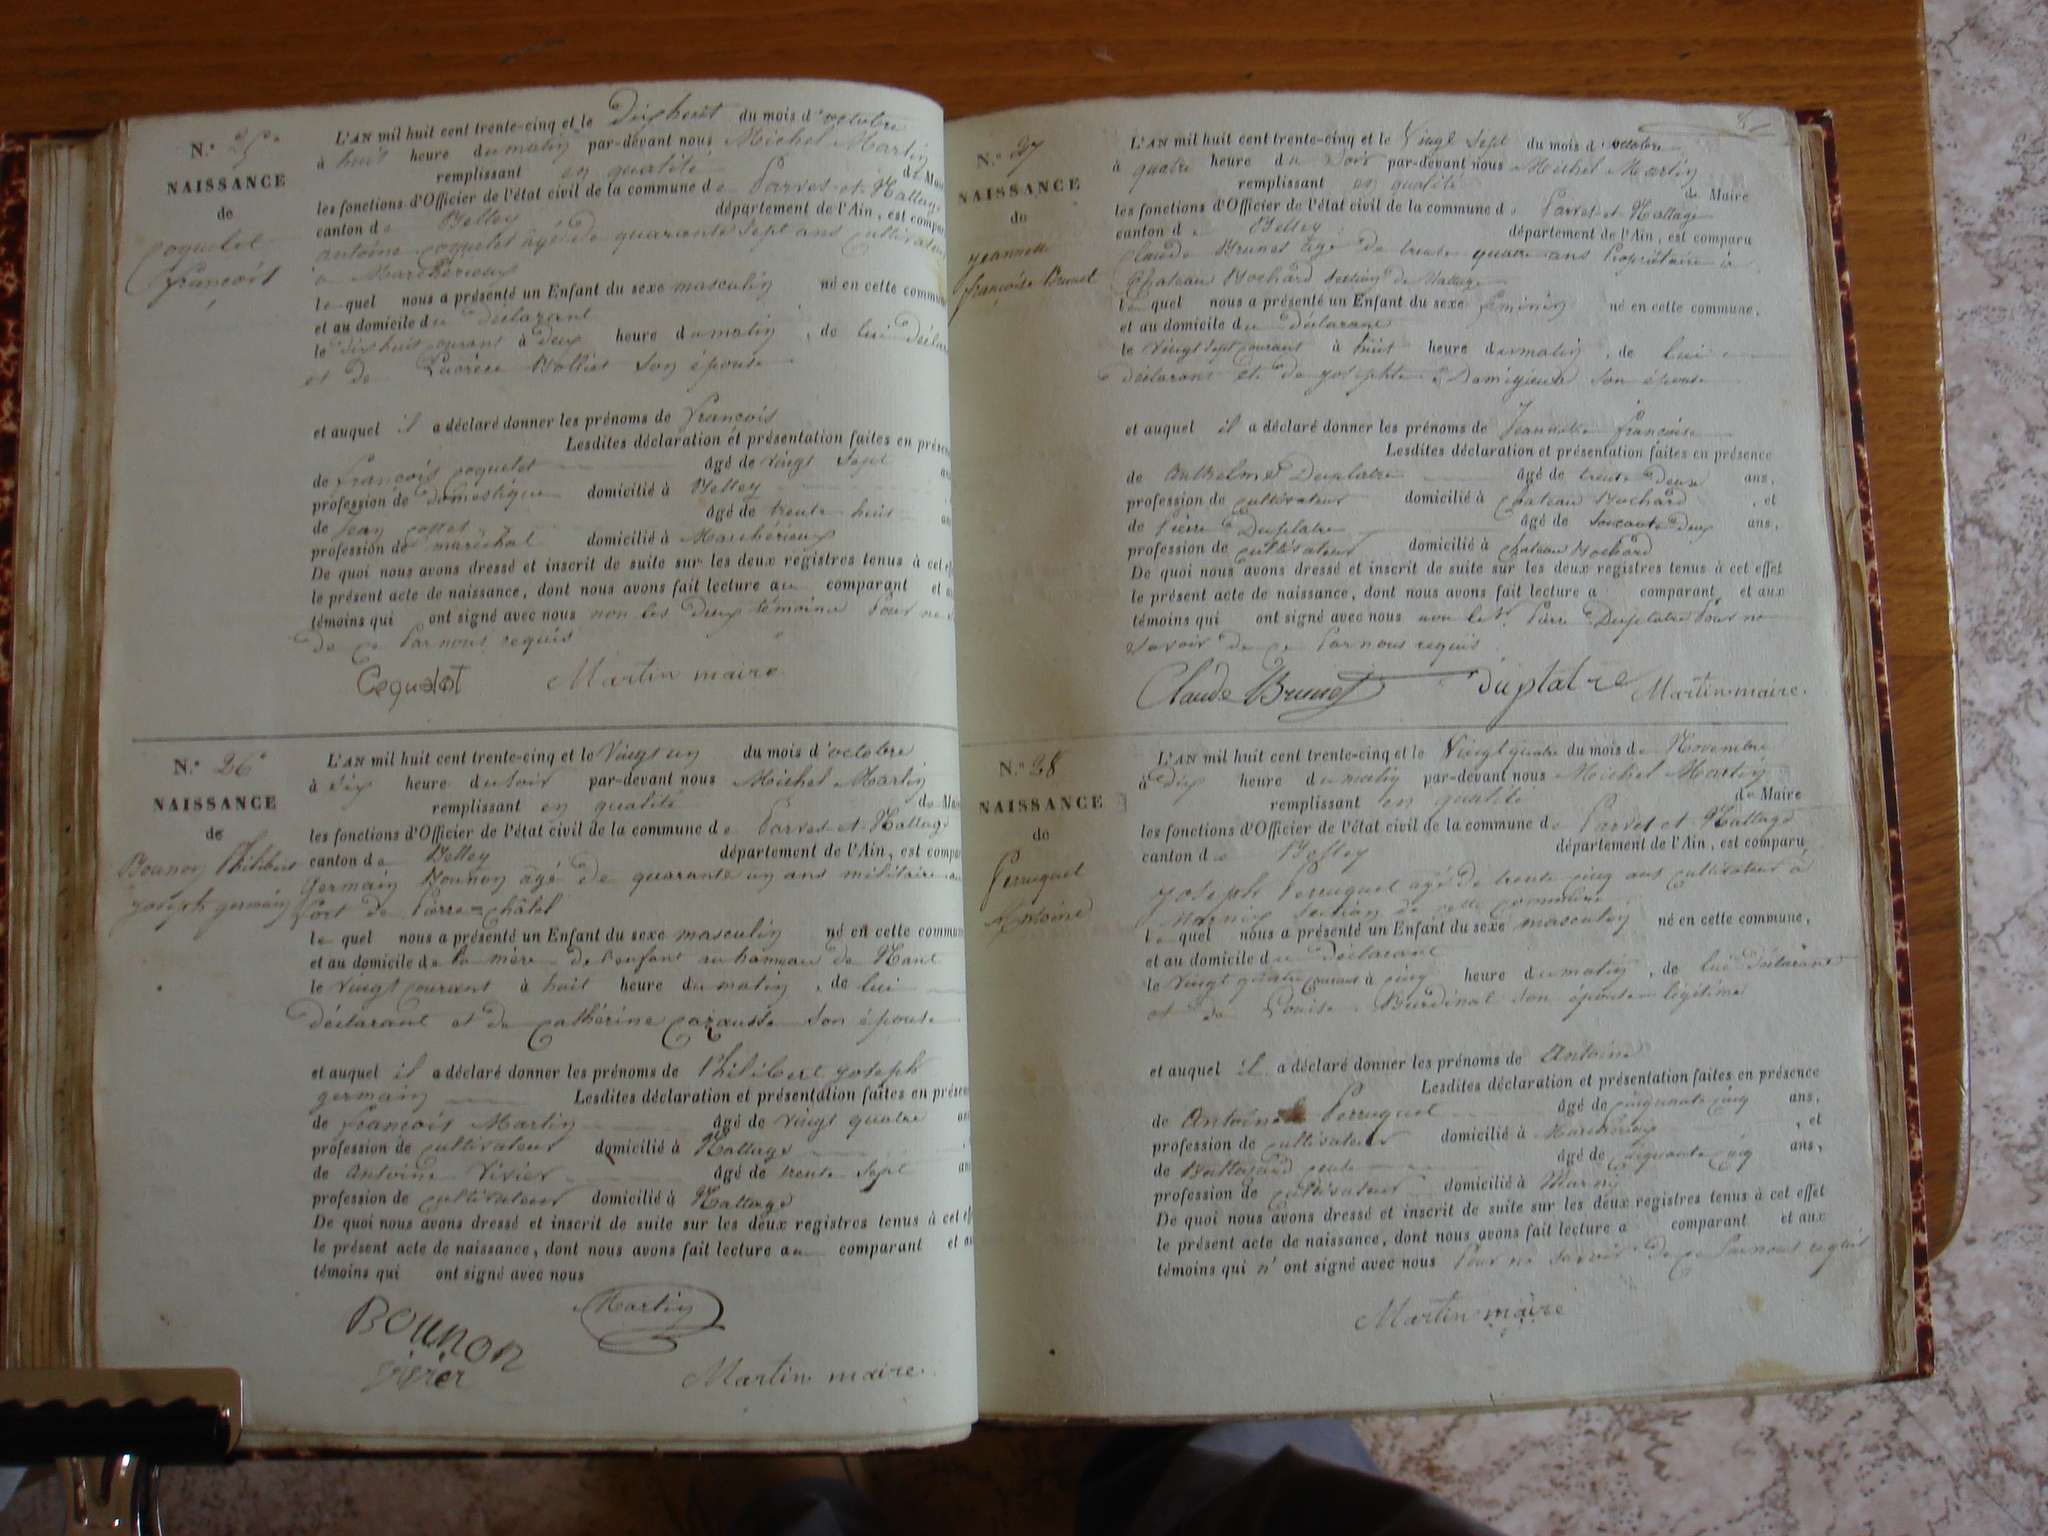 N.° 25
NAISSANCE
de
Coquelet
François
L'AN mil huit cent trente-cinq et le Dix huit du mois d'octobre
à huit heure du matin par-devant nous Michel Martin
remplissant en qualité de Mai
les fonctions d'Officier de l'état civil de la commune de Parves et Nattage
canton de Belley département de l'Ain, est compar
antoine Coquelet âgé de quarante sept ans cultivateur
à Marchérieux
lequel nous a présenté un Enfant du sexe masculin né en cette commun
et au domicile du déclarant
le dix huit courant à deux heure du matin, de lui déclar
et de Lucrèce Bollier son épouse
et auquel il a déclaré donner les prénoms de François
Lesdites déclaration et présentation faites en présen
de François Coquelet âgé de vingt sept an
profession de domestique domicilié à Belley
de Jean âgé de trente huit an
profession de maréchal domicilié à Marchérieux
De quoi nous avons dressé et inscrit de suite sur les deux registres tenus à cet ef
le présent acte de naissance, dont nous avons fait lecture au comparant et a
témoins qui ont signé avec nous non les deux témoins Pour ne
de ce Par nous requis
Coquelet Martin maire
N.° 26
NAISSANCE
de
Bounon Philibert
joseph germain
L'AN mil huit cent trente-cinq et le Vingt un du mois d'octobre
à six heure du soir par-devant nous Michel Martin
remplissant en qualité de Mai
les fonctions d'Officier de l'état civil de la commune de Parves et Nattage
canton de Belley département de l'Ain, est compar
Germain Bounon âgé de quarante un ans militaire au
fort de Pierre=châtel
lequel nous a présenté un Enfant du sexe masculin né en cette commun
et au domicile de la mère de l'enfant au hameau de Nant
le Vingt courant à huit heure du matin, de lui
déclarant et de Catherine son épouse
et auquel il a déclaré donner les prénoms de Philibert joseph
germain Lesdites déclaration et présentation faites en présen
de François Martin âgé de vingt quatre an
profession de cultivateur domicilié à Nattage
de Antoine Vivier âgé de trente sept an
profession de cultivateur domicilié à Nattage
De quoi nous avons dressé et inscrit de suite sur les deux registres tenus à cet eff
le présent acte de naissance, dont nous avons fait lecture au comparant et au
témoins qui ont signé avec nous
Bounon Martin
Vivier Martin maire
N.° 27
NAISSANCE
de
jeannette
françoise Brunet
L'AN mil huit cent trente-cinq et le Vingt sept du mois d'octobre
à quatre heure du soir par-devant nous Michel Martin
remplissant en qualité de Maire
les fonctions d'Officier de l'état civil de la commune de Parves et Nattage
canton de Belley département de l'Ain, est comparu
Claude Brunet âgé de trente quatre ans Propriétaire à
Chateau Bochard section de Nattage
lequel nous a présenté un Enfant du sexe féminin né en cette commune,
et au domicile du déclarant
le vingt sept courant à huit heure du matin, de lui
déclarant et de josephte son épouse
et auquel il a déclaré donner les prénoms de Jeannette françoise
Lesdites déclaration et présentation faites en présence
de Anthelme Duplatre âgé de trente deux ans,
profession de cultivateur domicilié à Chateau Bochard, et
de Pierre Duplatre âgé de soixante deux ans,
profession de cultivateur domicilié à Chateau Bochard
De quoi nous avons dressé et inscrit de suite sur les deux registres tenus à cet effet
le présent acte de naissance, dont nous avons fait lecture a comparant et aux
témoins qui ont signé avec nous non le Sr. Pierre Duplatre Pour ne
savoir de ce Par nous requis
Claude Brunet duplatre Martin maire.
N.° 28
NAISSANCE
de
Perruquet
Antoine
L'AN mil huit cent trente-cinq et le Vingt quatre du mois de Novembre
à dix heure du matin par-devant nous Michel Martin
remplissant en qualité de Maire
les fonctions d'Officier de l'état civil de la commune de Parves et Nattage
canton de Belley département de l'Ain, est comparu
joseph Perruquet âgé de trente cinq ans cultivateur à
section de cette commune
lequel nous a présenté un Enfant du sexe masculin né en cette commune,
et au domicile du déclarant
le Vingt quatre courant à cinq heure du matin, de lui déclarant
et de Louise Burdinat son épouse légitime
et auquel il a déclaré donner les prénoms de Antoine
Lesdites déclaration et présentation faites en présence
de Antoine Perruquet âgé de cinquante cinq ans,
profession de cultivateur domicilié à Marchérieux, et
de âgé de cinquante cinq ans,
profession de cultivateur domicilié à
De quoi nous avons dressé et inscrit de suite sur les deux registres tenus à cet effet
le présent acte de naissance, dont nous avons fait lecture a comparant et aux
témoins qui n'ont signé avec nous Pour ne savoir de ce Par nous requis
Martin maire